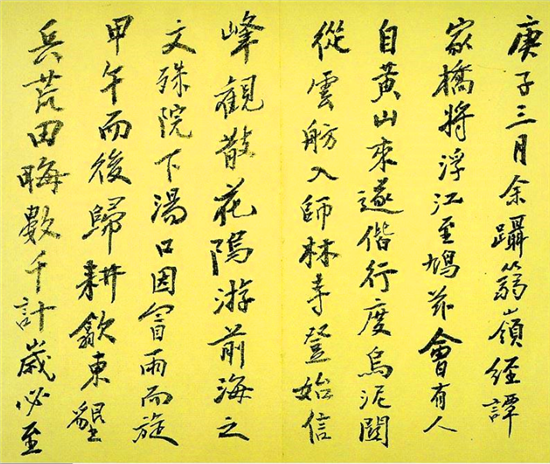 庚子三月余躡篛嶺經譚
家橋將浮江至鳩茲會有人
自黃山來遂偕行度烏泥關
從雲舫入師林寺登始信
峰觀散花隖游前海之
文殊院下湯口因冒雨而旋
甲午而後歸耕歙東墾
兵荒田畮數千計歲必至